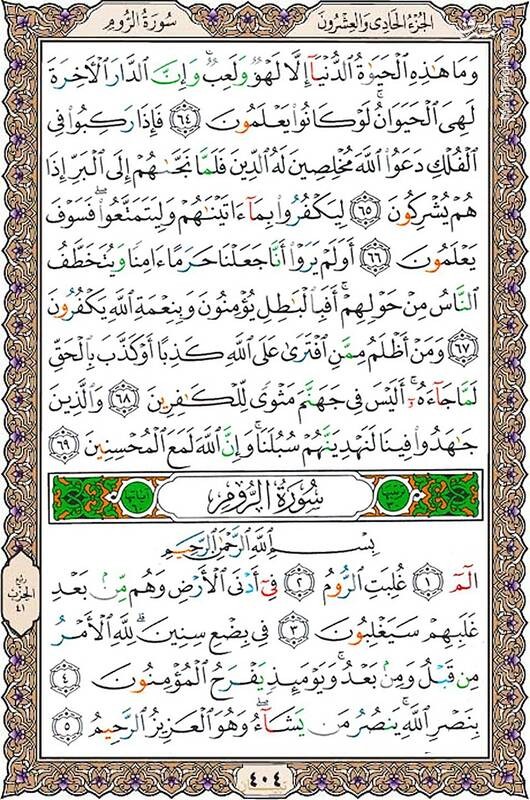 الجزء الحادي والعشرون
سورة الروم
وَمَا هَٰذِهِ ٱلْحَيَوٰةُ ٱلدُّنْيَآ إِلَّا لَهْوٌ وَلَعِبٌ ۚ وَإِنَّ ٱلدَّارَ ٱلْأَخِرَةَ
لَهِىَ ٱلْحَيَوَانُ ۚ لَوْ كَانُوا۟ يَعْلَمُونَ ٦٤ فَإِذَا رَكِبُوا۟ فِى
ٱلْفُلْكِ دَعَوُا۟ ٱللَّهَ مُخْلِصِينَ لَهُ ٱلدِّينَ فَلَمَّا نَجَّىٰهُمْ إِلَى ٱلْبَرِّ إِذَا
هُمْ يُشْرِكُونَ ٦٥ لِيَكْفُرُوا۟ بِمَآ ءَاتَيْنَٰهُمْ وَلِيَتَمَتَّعُوا۟ ۖ فَسَوْفَ
يَعْلَمُونَ ٦٦ أَوَلَمْ يَرَوْا۟ أَنَّا جَعَلْنَا حَرَمًا ءَامِنًا وَيُتَخَطَّفُ
ٱلنَّاسُ مِنْ حَوْلِهِمْ ۚ أَفَبِٱلْبَٰطِلِ يُؤْمِنُونَ وَبِنِعْمَةِ ٱللَّهِ يَكْفُرُونَ
٦٧ وَمَنْ أَظْلَمُ مِمَّنِ ٱفْتَرَىٰ عَلَى ٱللَّهِ كَذِبًا أَوْ كَذَّبَ بِٱلْحَقِّ
لَمَّا جَآءَهُۥٓ ۚ أَلَيْسَ فِى جَهَنَّمَ مَثْوًى لِّلْكَٰفِرِينَ ٦٨ وَٱلَّذِينَ
جَٰهَدُوا۟ فِينَا لَنَهْدِيَنَّهُمْ سُبُلَنَا ۚ وَإِنَّ ٱللَّهَ لَمَعَ ٱلْمُحْسِنِينَ ٦٩
سورة الروم
بِسْمِ ٱللَّهِ ٱلرَّحْمَٰنِ ٱلرَّحِيمِ
الٓمٓ ١ غُلِبَتِ ٱلرُّومُ ٢ فِىٓ أَدْنَى ٱلْأَرْضِ وَهُم مِّنۢ بَعْدِ
غَلَبِهِمْ سَيَغْلِبُونَ ٣ فِى بِضْعِ سِنِينَ ۗ لِلَّهِ ٱلْأَمْرُ
مِن قَبْلُ وَمِنۢ بَعْدُ ۚ وَيَوْمَئِذٍ يَفْرَحُ ٱلْمُؤْمِنُونَ ٤
بِنَصْرِ ٱللَّهِ ۚ يَنصُرُ مَن يَشَآءُ ۖ وَهُوَ ٱلْعَزِيزُ ٱلرَّحِيمُ ٥
ربع
الحزب
٤١
٤٠٤